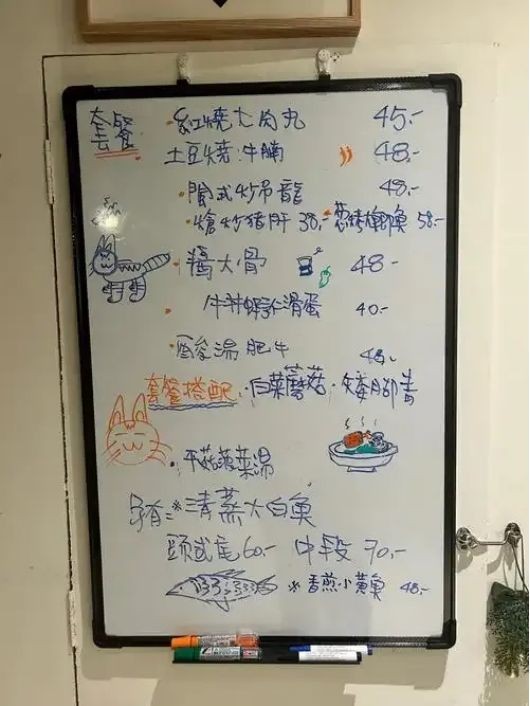 套餐 ·紅燒大肉丸 45.-
土豆燒牛腩 48.-
·閩式炒吊龍 48.-
·熗炒猪肝 38.- 葱烤鯽魚 58.-
·醬大骨 48-
·牛肉蝦仁滑蛋 40.-
·酸湯肥牛 48.
套餐搭配:·白菜蘑菇·矮腳青
·平菇菠菜湯
*清蒸大白魚
頭或尾60.- 中段 70.-
*香煎小黃魚 48.-